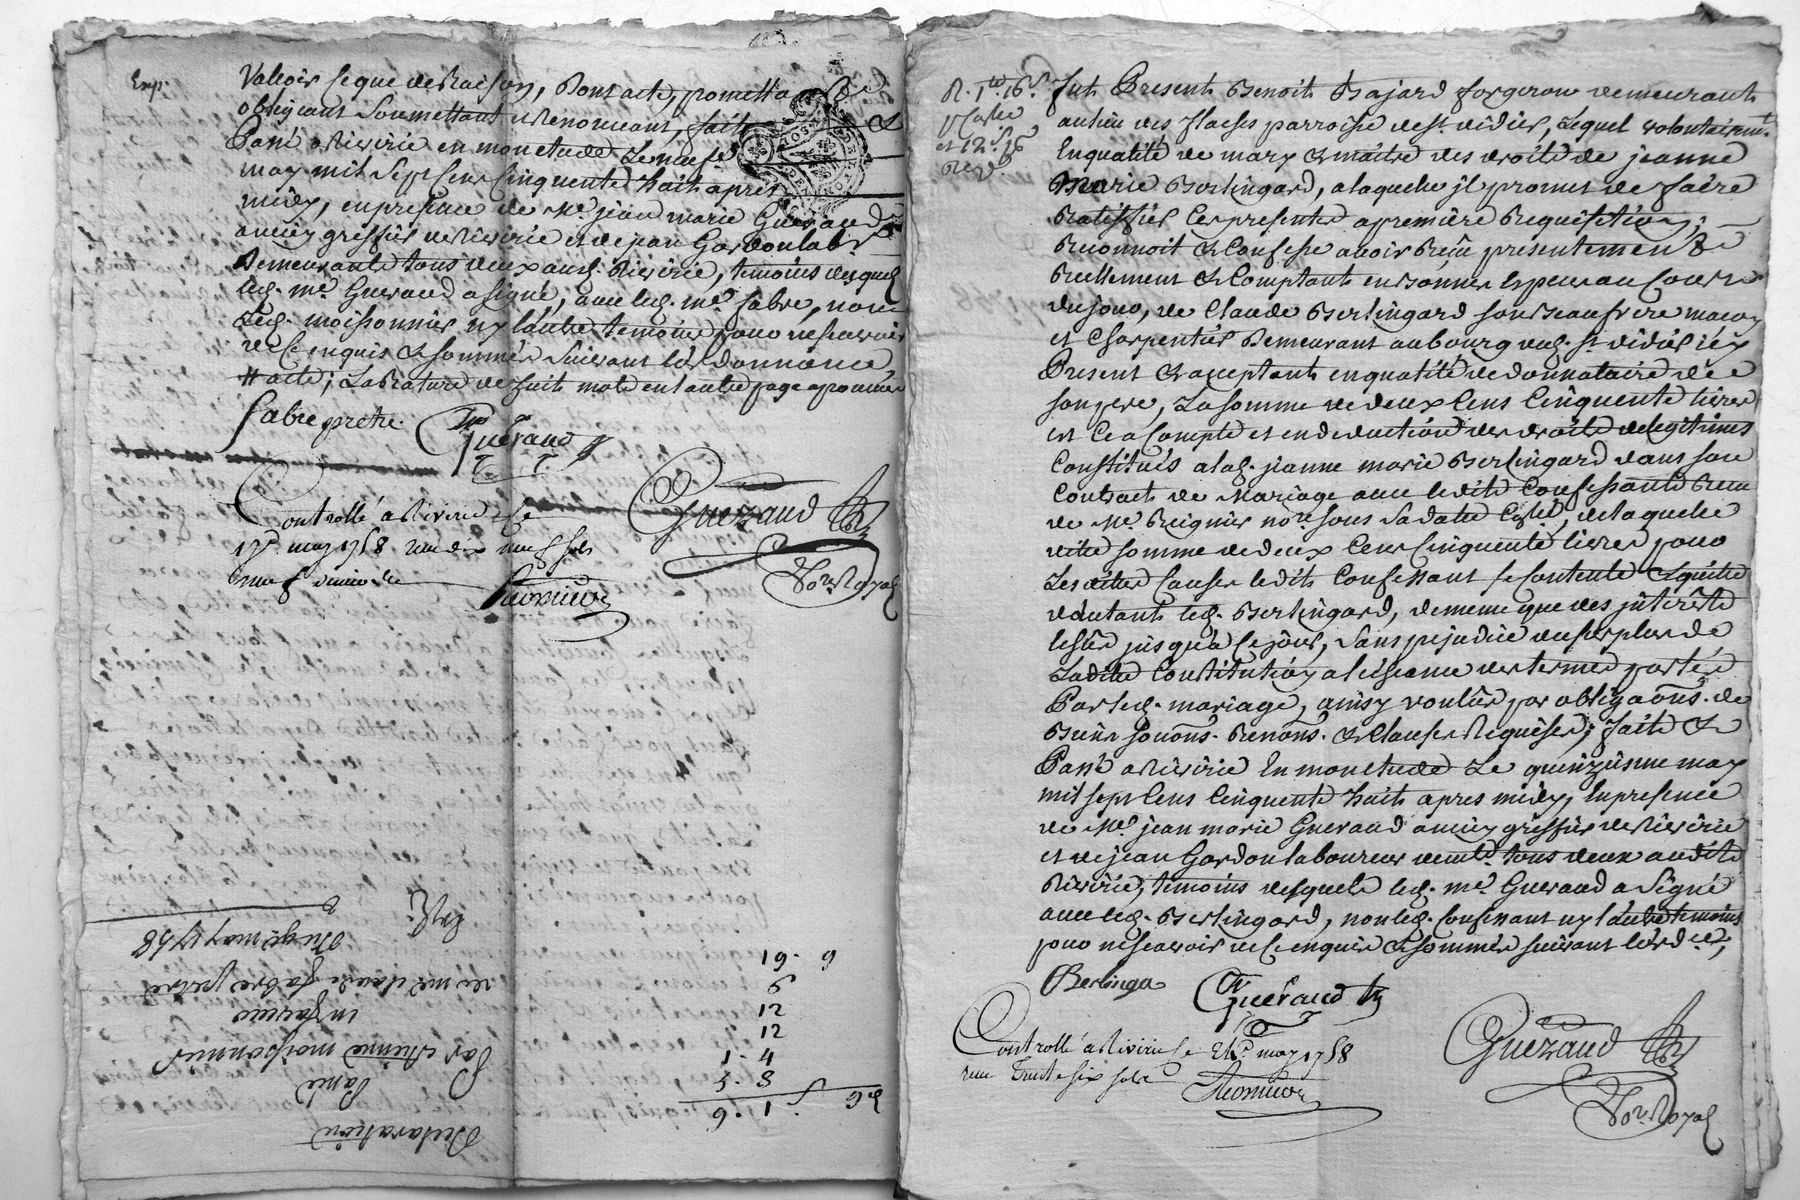 Exp.
Valloir ce que de Raison, Dont acte, promettant
obligeant Soumettant et Renonceant, fait &
Passé a Riverie en mon etude Le neuf
may mil Sept Cens Cinquante huit apres
midy, en presence de Me. jean marie Gueraud
ancien greffier de Riverie et de jean Gardon lab.r
Demeurants tous deux aud. Riverie, temoins desquels
led. me. Gueraud a signé, avec led. me. fabre, non
Led. moissonnier ny l'autre temoin pour ne sçavoir
de ce enquis & sommés suivant l'ordonnance
# acte; La Rature de huit mots en l'autre page approuvée
fabre pretre. Gueraud
Controllé a Riverie le
17e. may 1758 Reçu dix neuf sols
neuf deniers
Gueraud
No.re Royal
19 . 9
9
12
12
1 . 4
3 . 8
6 . 1 .
Declaration
Passé
Par etienne moissonnier
en faveur
de me. claude fabre pretre
Du 9e may 1758
Exp.
R. 1.te 16 s.
1 Castre
et 12 s. 16
Red.
fut Present Benoit Bajard forgeron demeurant
au lieu des flaches parroisse de st. didier, Lequel volontairemt.
En qualité de mary & maitre des droits de jeanne
Marie Berlingard, a laquelle jl promet de faire
Ratiffier Ces presentes a premiere Requisition;
Reconnoit & Confesse avoir Reçû presentement
Reellement & Comptant en bonnes especes au Cours
du jour, de Claude Berlingard son Beaufrere macon
et Charpentier Demeurant au bourg dud. st. didier icy
Present & acceptant en qualité de donnataire de
son pere, La somme de deux Cens Cinquante livres
et Ce a Compte et en deduction des droits de legitimes
Constitués a lad. jeanne marie Berlingard dans son
Contract de Mariage avec ledit Confessant Reçu
de Me. Reignier no.re sous Sa date, de laquelle
dite somme de deux Cens Cinquante livres pour
Les dites Causes ledit Confessant se Contente & quitte
d'autant led. Berlingard, de meme que des jnterêts
jusqu'à Ce jour, Sans prejudice du surplus de
Ladite Constitution a l'écheance des termes portés
Par led. mariage, ainsy voulûs par obligaons. de
Biens soumons. Renons. & Clauses Requises; fait &
Passé a Riverie En mon etude Le quinzieme may
mil sept Cens Cinquante huit apres midy, En presence
de Me. jean marie Gueraud ancien greffier de Riverie
et de jean Gardon laboureur demts. tous deux audit
Riverie, temoins desquels led. me. Gueraud a Signé
avec led. Berlingard, non led. Confessant ny l'autre temoin
pour ne sçavoir de Ce enquis & sommés suivant l'ord.ce,
Berlinga Gueraud
Controllé a Riverie le may 1758
reçu Trente six sols
Gueraud
No.re Royal